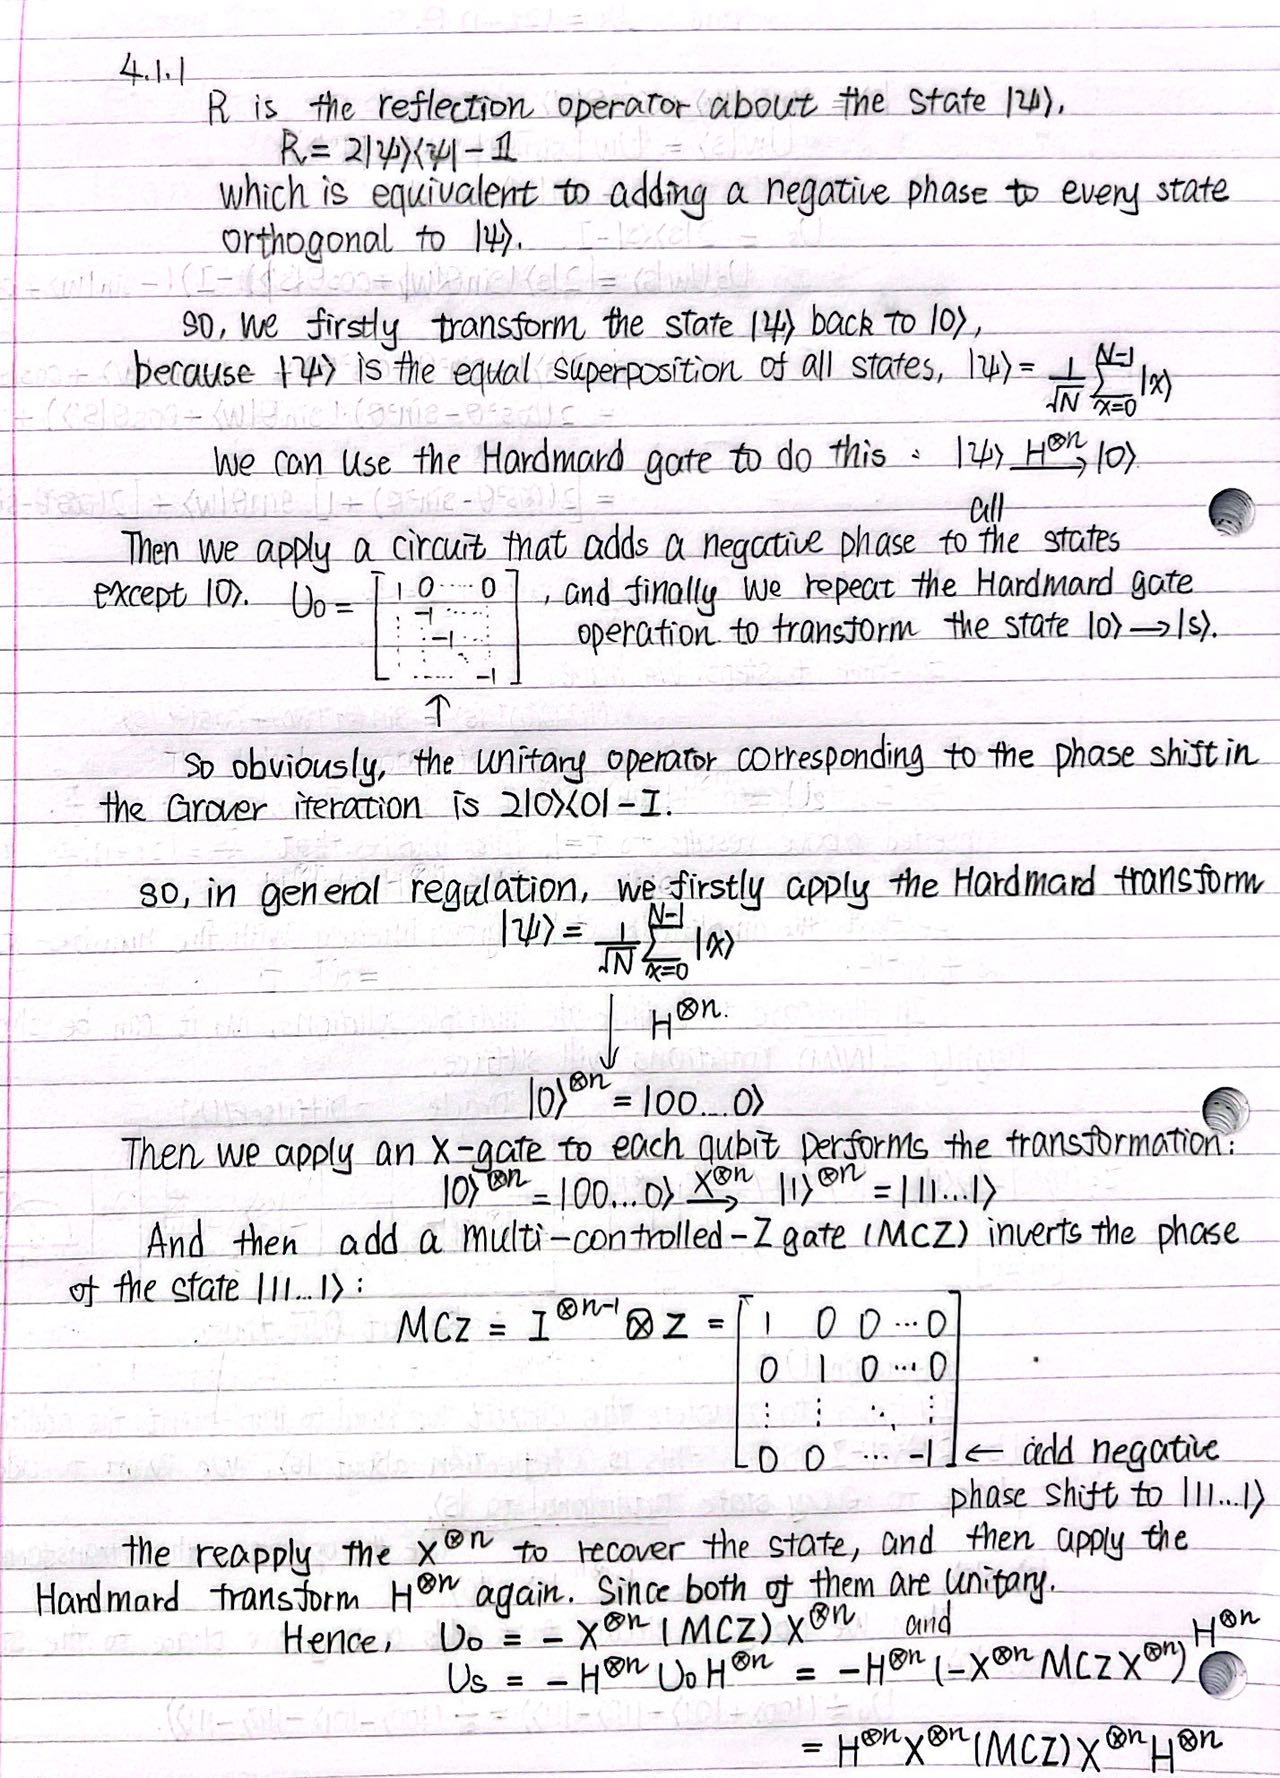 4.1.1
R is the reflection operator about the state |ψ⟩.
R = 2|ψ⟩⟨ψ| − 𝟙
which is equivalent to adding a negative phase to every state
orthogonal to |ψ⟩.
so, we firstly transform the state |ψ⟩ back to |0⟩,
because |ψ⟩ is the equal superposition of all states, |ψ⟩ = 1/√N ∑_{x=0}^{N−1} |x⟩
We can use the Hardmard gate to do this : |ψ⟩ —H^{⊗n}→ |0⟩
Then we apply a circuit that adds a negative phase to all the states
except |0⟩. U₀ = [1 0 ····· 0; −1 ·····; −1; ⋱; ····· −1], and finally we repeat the Hardmard gate
operation to transform the state |0⟩ → |s⟩.
↑
So obviously, the unitary operator corresponding to the phase shift in
the Grover iteration is 2|0⟩⟨0| − I.
so, in general regulation, we firstly apply the Hardmard transform
|ψ⟩ = 1/√N ∑_{x=0}^{N−1} |x⟩
↓ H^{⊗n}.
|0⟩^{⊗n} = |00...0⟩
Then we apply an X-gate to each qubit performs the transformation:
|0⟩^{⊗n} = |00...0⟩ —X^{⊗n}→ |1⟩^{⊗n} = |11...1⟩
And then add a multi-controlled-Z gate (MCZ) inverts the phase
of the state |11...1⟩ :
MCZ = I^{⊗n−1} ⊗ Z = [1 0 0 ··· 0; 0 1 0 ··· 0; ⋮ ⋮ ⋱ ⋮; 0 0 ··· −1] ← add negative
phase shift to |11...1⟩
the reapply the X^{⊗n} to recover the state, and then apply the
Hardmard transform H^{⊗n} again. Since both of them are unitary.
Hence, U₀ = − X^{⊗n} (MCZ) X^{⊗n} and
Us = − H^{⊗n} U₀ H^{⊗n} = −H^{⊗n} (−X^{⊗n} MCZ X^{⊗n}) H^{⊗n}
= H^{⊗n} X^{⊗n} (MCZ) X^{⊗n} H^{⊗n}